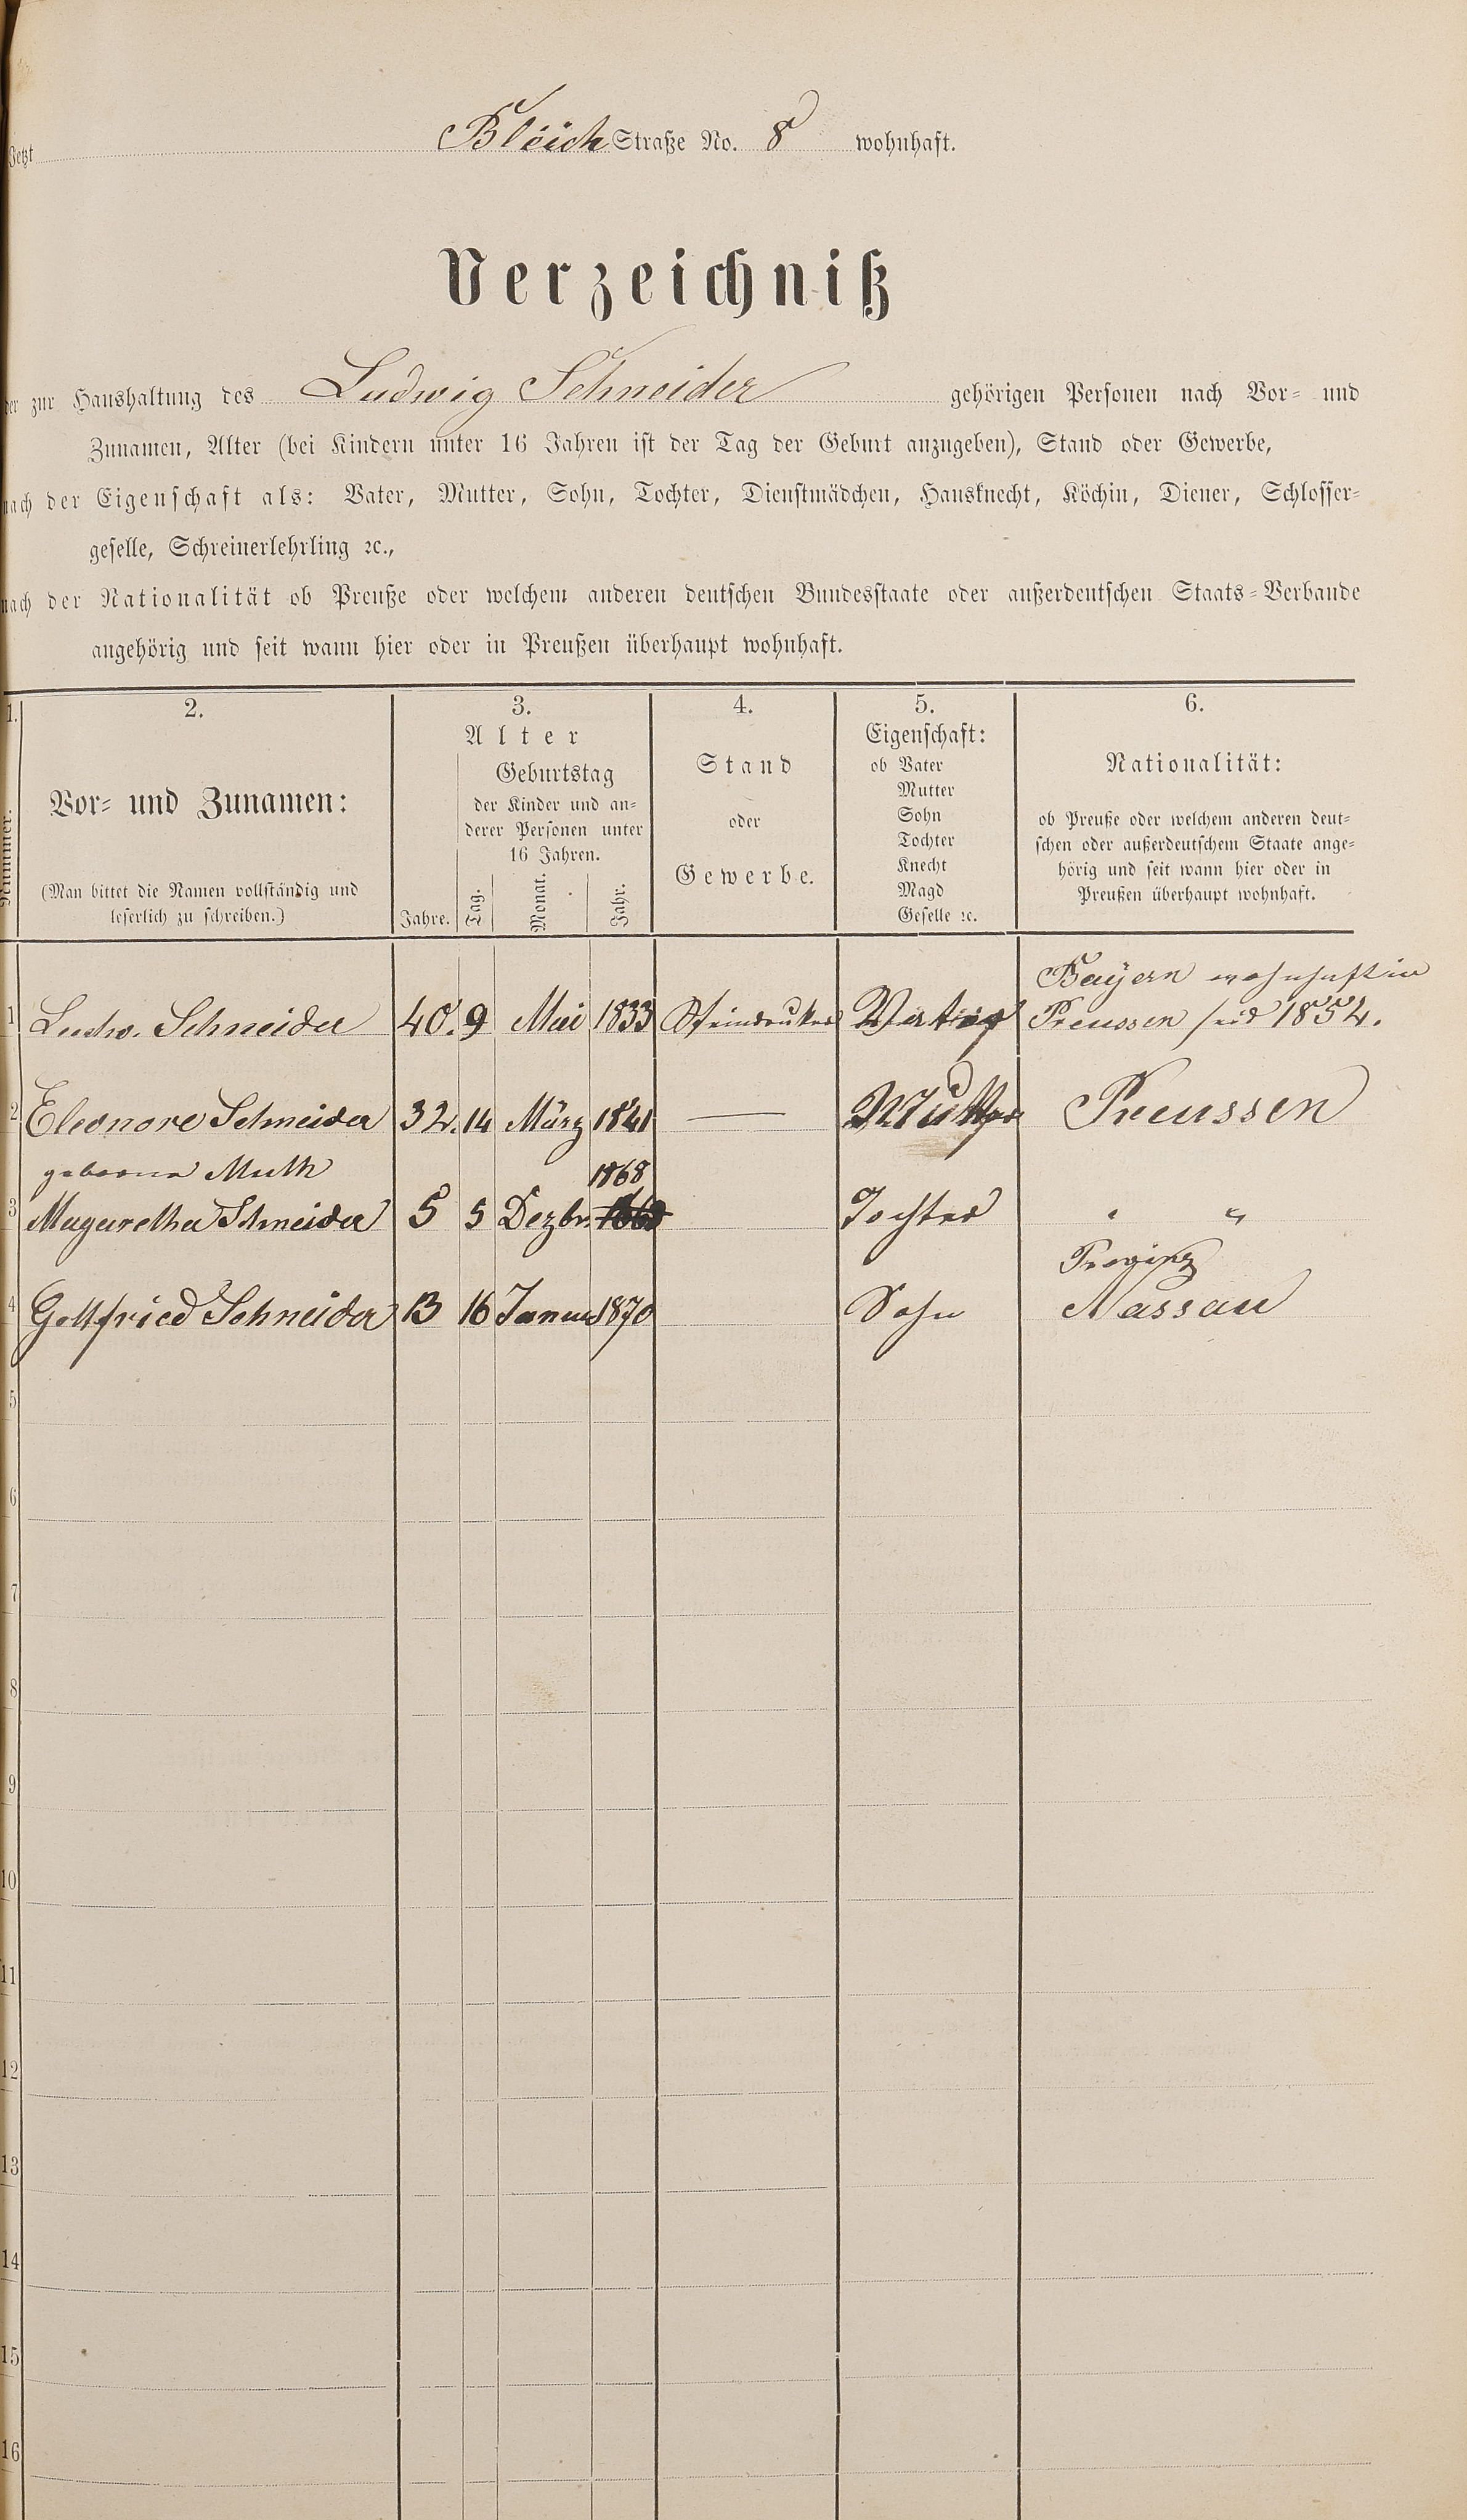 Jetzt Bleich Straße No. 8 wohnhaft.
Verzeichniß
der zur Haushaltung des Ludwig Schneider gehörigen Personen nach Vor- und
Zunamen, Alter (bei Kindern unter 16 Jahren ist der Tag der Geburt anzugeben), Stand oder Gewerbe,
nach der Eigenschaft als: Vater, Mutter, Sohn, Tochter, Dienstmädchen, Hausknecht, Köchin, Diener, Schlosser-
geselle, Schreinerlehrling ꝛc.,
nach der Nationalität ob Preuße oder welchem anderen deutschen Bundesstaate oder außerdeutschen Staats-Verbande
angehörig und seit wann hier oder in Preußen überhaupt wohnhaft.
1.
Nummer.
2.
Vor- und Zunamen:
(Man bittet die Namen vollständig und
leserlich zu schreiben.)
3.
Alter
Jahre.
Geburtstag
der Kinder und an-
derer Personen unter
16 Jahren.
Tag. Monat. Jahr.
4.
Stand
oder
Gewerbe.
5.
Eigenschaft:
ob Vater
Mutter
Sohn
Tochter
Knecht
Magd
Geselle ꝛc.
6.
Nationalität:
ob Preuße oder welchem anderen deut-
schen oder außerdeutschem Staate ange-
hörig und seit wann hier oder in
Preußen überhaupt wohnhaft.
Bayern wohnhaft in
1 Ludw. Schneider 40. 9 Mai 1833 Steindrucker Preussen seid 1854.
2 Eleonore Schneider 32. 14 März 1841 — Mutter Preussen
geborne Muth 1868
3 Magaretha Schneider 5 5 Dezbr. Tochter " "
Provinz
4 Gottfried Schneider 13 16 Januar 1870 Sohn Nassau
5
6
7
8
9
10
11
12
13
14
15
16